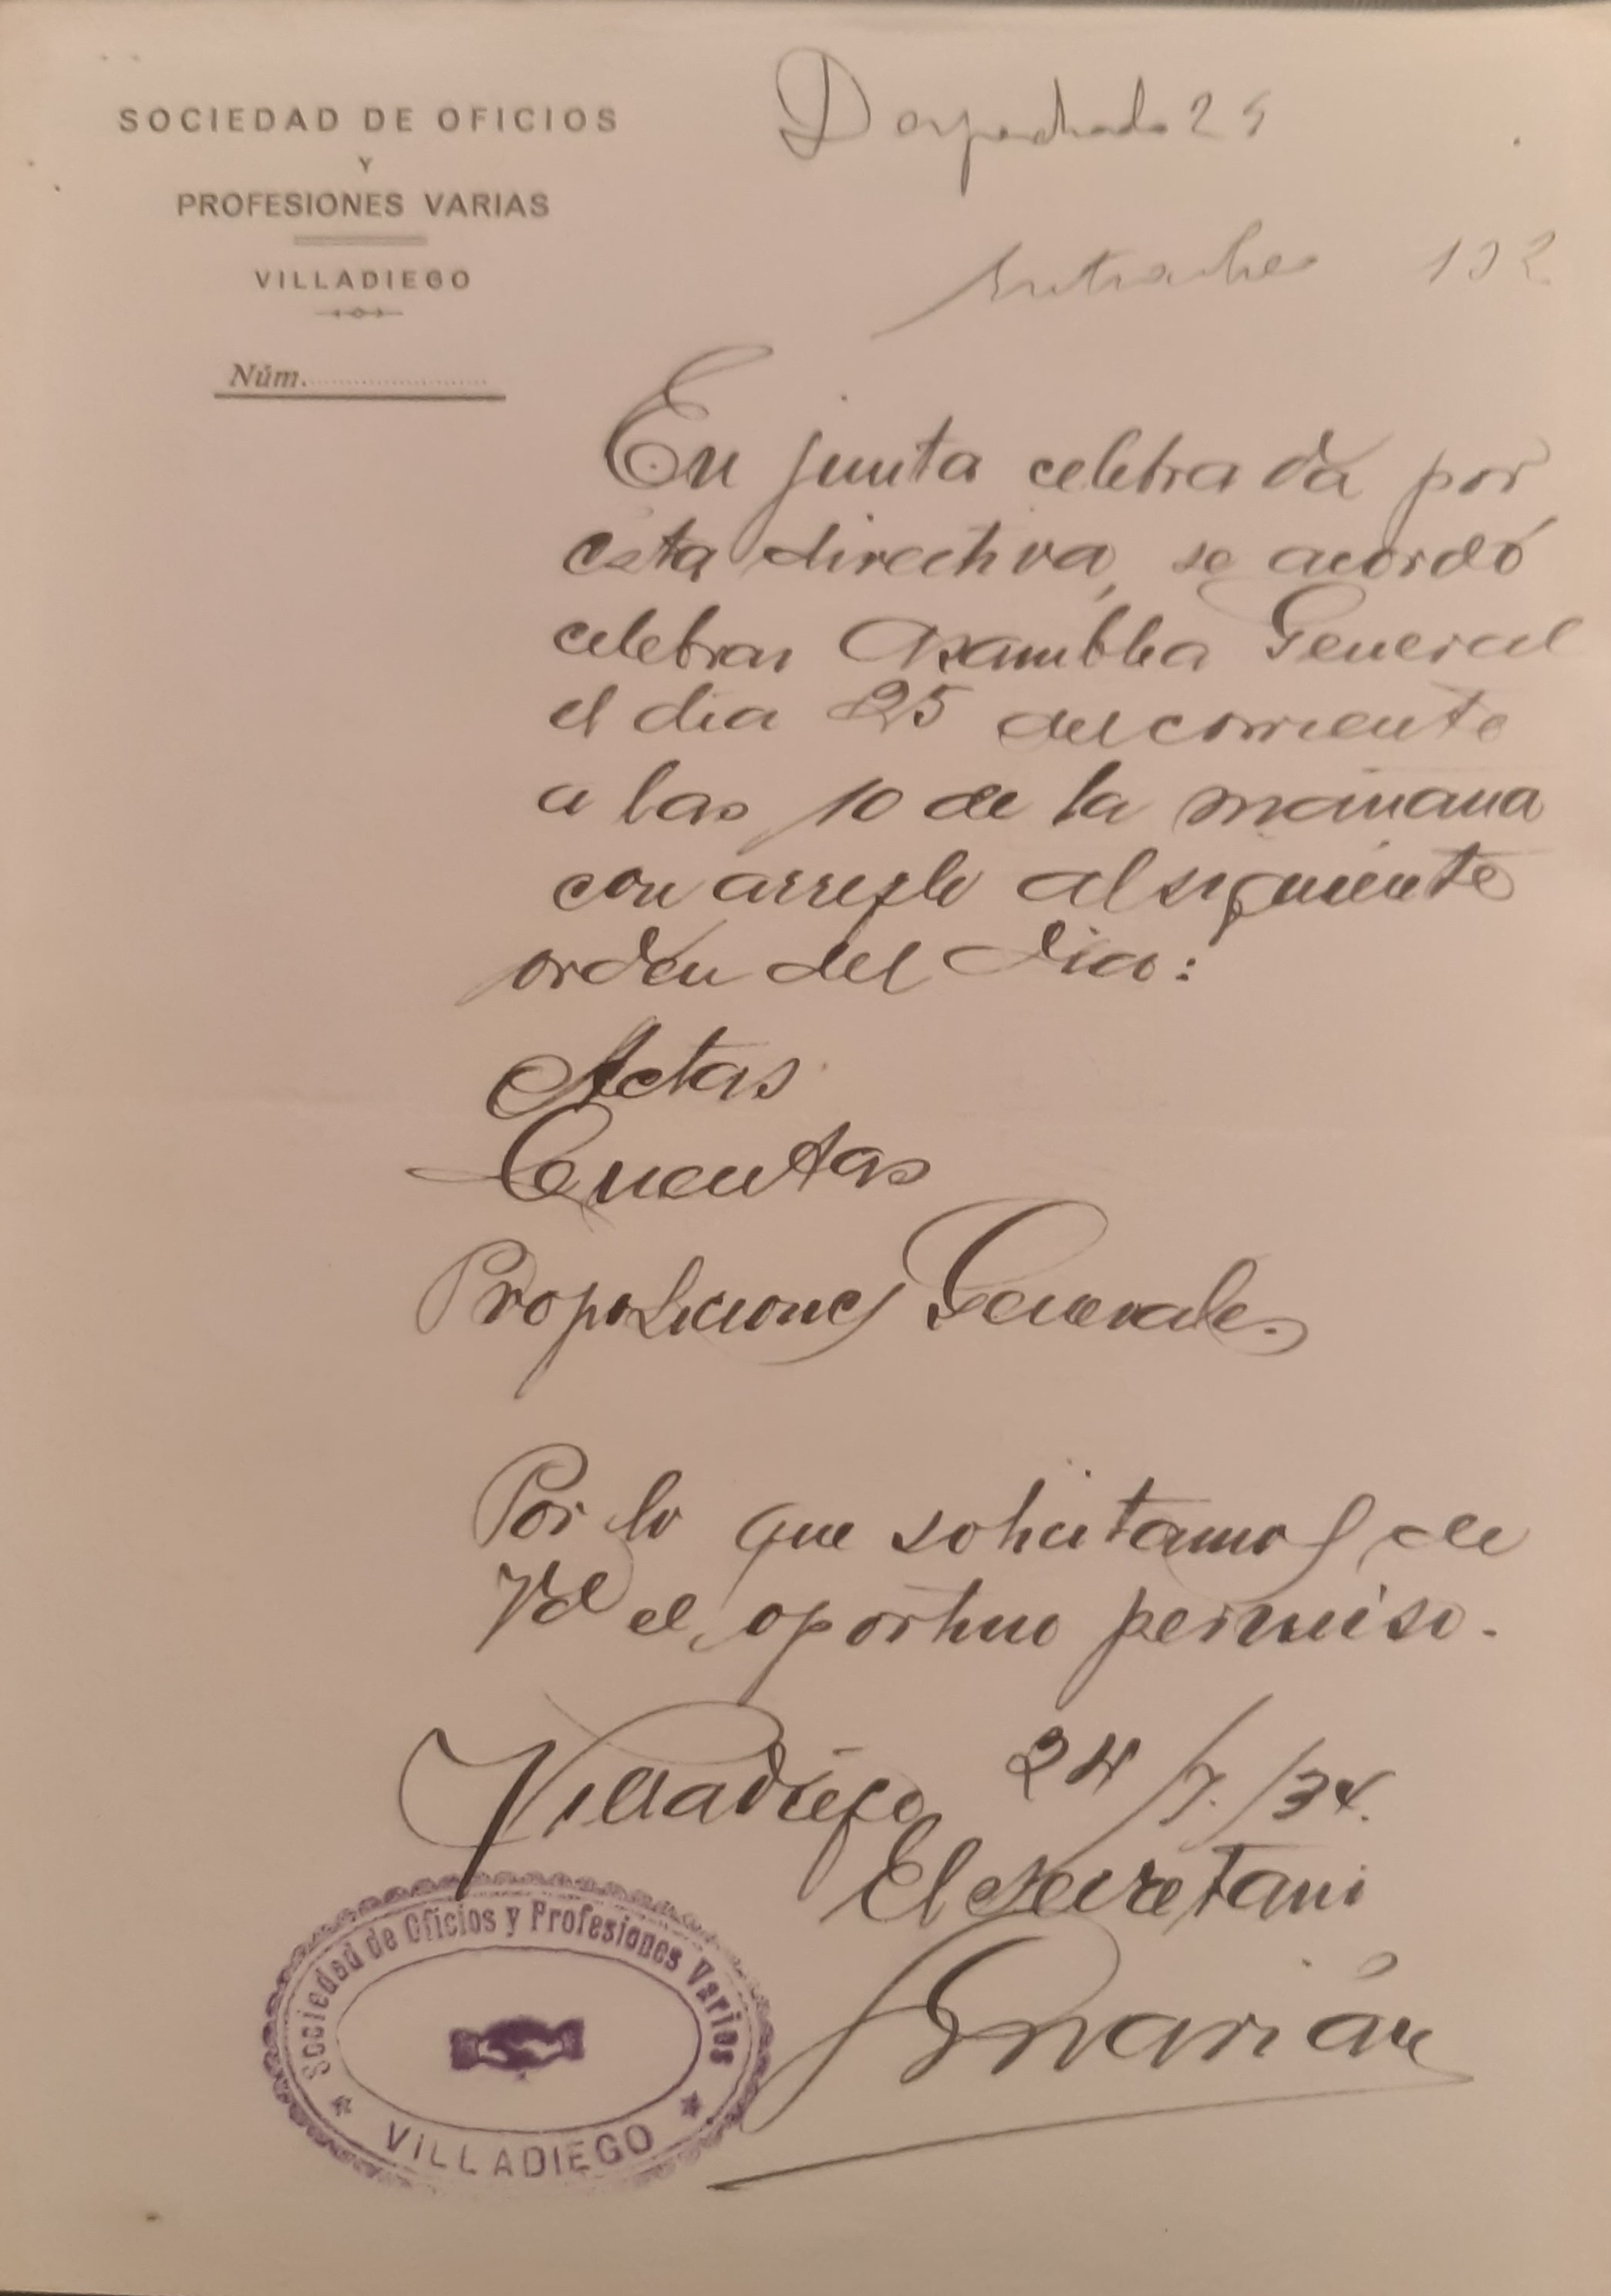 SOCIEDAD DE OFICIOS
Y
PROFESIONES VARIAS
VILLADIEGO
Núm.
Despachado 25
132
En junta celebrada por
esta directiva, se acordó
celebrar Asamblea General
el dia 25 del corriente
a las 10 de la mañana
con arreglo al siguiente
orden del Dia:
Actas
Cuentas
Proposiciones Generales
Por lo que solicitamos de
Vd el oportuno permiso.
Villadiego 24/7/34.
El secretari
Sociedad de Oficios y Profesiones Varios
VILLADIEGO